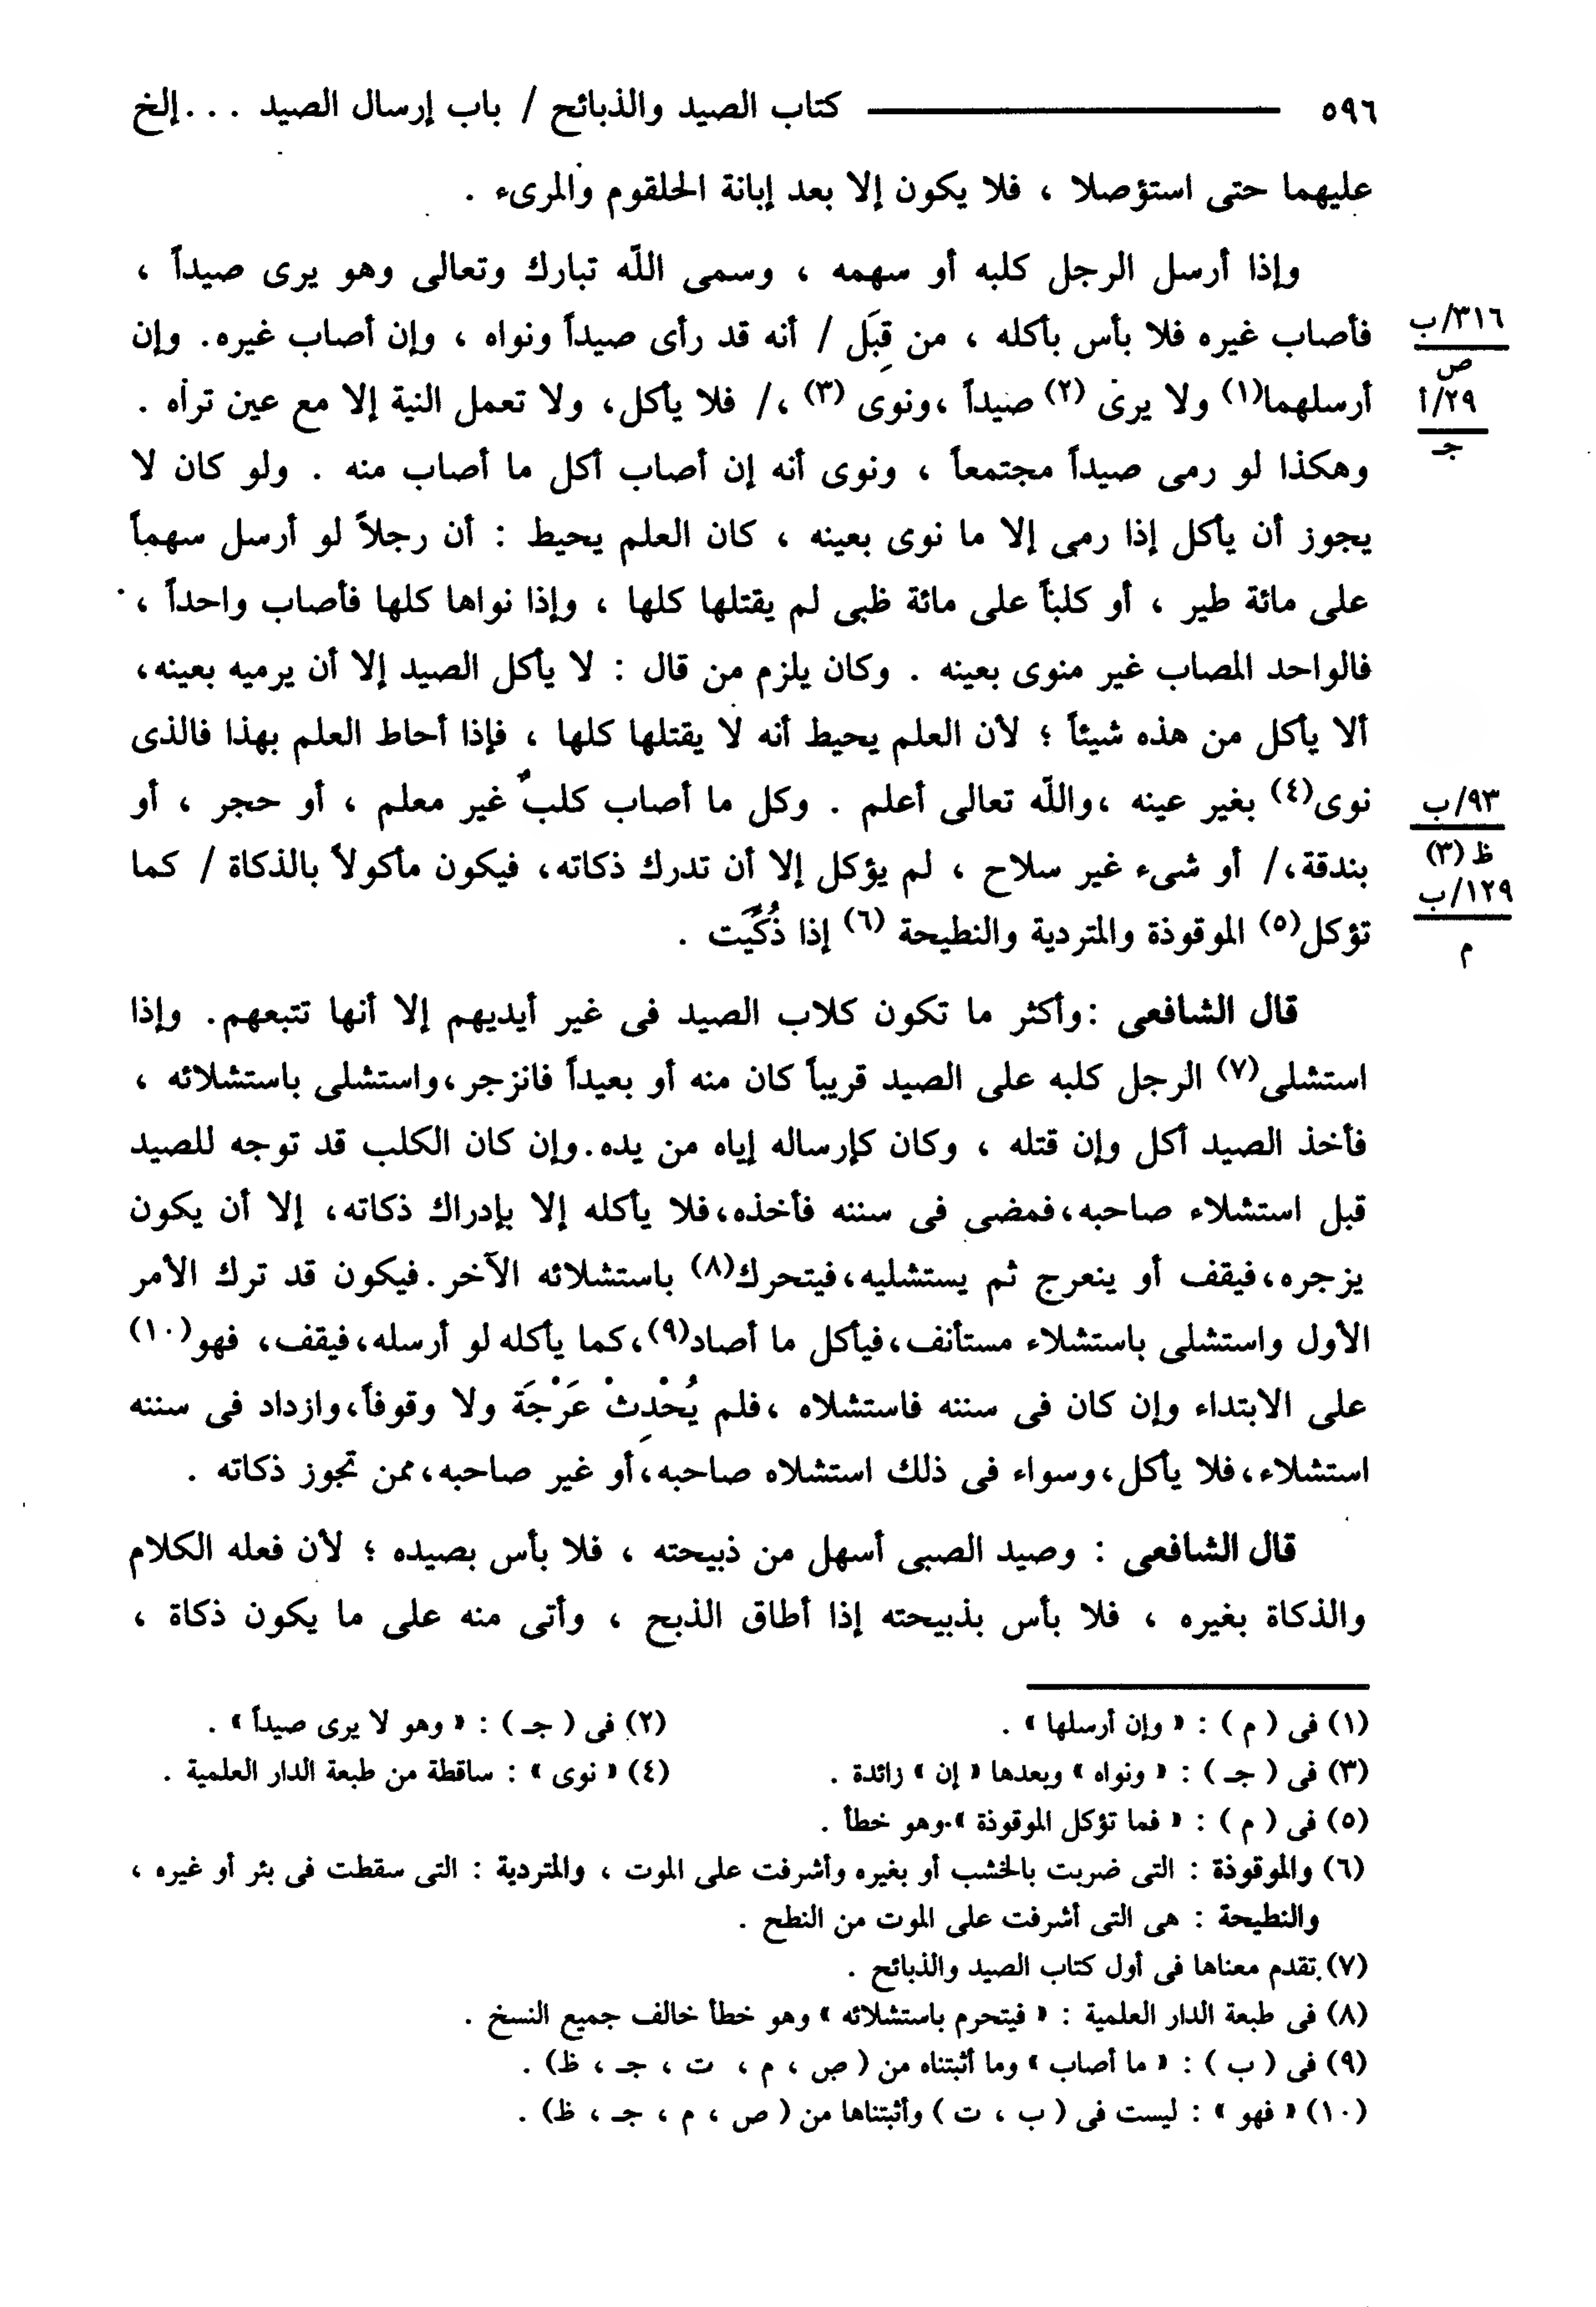 ٥٩٦ كتاب الصيد والذبائح / باب إرسال الصيد . . . إلخ
عليهما حتى استؤصلا ، فلا يكون إلا بعد إبانة الحلقوم والمرىء .
وإذا أرسل الرجل كلبه أو سهمه ، وسمى اللّه تبارك وتعالى وهو يرى صيداً ،
فأصاب غيره فلا بأس بأكله ، من قِبَل / أنه قد رأى صيداً ونواه ، وإن أصاب غيره. وإن
٣١٦/ب
ص
أرسلهما(١) ولا يرى (٢) صيداً ،ونوى (٣) ،/ فلا يأكل، ولا تعمل النية إلا مع عين تراه .
٢٩/أ
جـ
وهكذا لو رمى صيداً مجتمعاً ، ونوى أنه إن أصاب أكل ما أصاب منه . ولو كان لا
يجوز أن يأكل إذا رمى إلا ما نوى بعينه ، كان العلم يحيط : أن رجلاً لو أرسل سهماً
على مائة طير ، أو كلباً على مائة ظبى لم يقتلها كلها ، وإذا نواها كلها فأصاب واحداً ،
فالواحد المصاب غير منوى بعينه . وكان يلزم من قال : لا يأكل الصيد إلا أن يرميه بعينه،
ألا يأكل من هذه شيئاً ؛ لأن العلم يحيط أنه لا يقتلها كلها ، فإذا أحاط العلم بهذا فالذى
نوى(٤) بغير عينه ،واللّه تعالى أعلم . وكل ما أصاب كلبٌ غير معلم ، أو حجر ، أو
٩٣/ب
ظ (٣)
بندقة،/ أو شىء غير سلاح ، لم يؤكل إلا أن تدرك ذكاته، فيكون مأكولاً بالذكاة / كما
١٢٩/ب
م
تؤكل(٥) الموقوذة والمتردية والنطيحة (٦) إذا ذُكِّيَت .
قال الشافعى :وأكثر ما تكون كلاب الصيد فى غير أيديهم إلا أنها تتبعهم. وإذا
استشلى(٧) الرجل كلبه على الصيد قريباً كان منه أو بعيداً فانزجر،واستشلى باستشلائه ،
فأخذ الصيد أكل وإن قتله ، وكان كإرساله إياه من يده.وإن كان الكلب قد توجه للصيد
قبل استشلاء صاحبه،فمضى فى سننه فأخذه،فلا يأكله إلا بإدراك ذكاته، إلا أن يكون
يزجره،فيقف أو ينعرج ثم يستشليه،فيتحرك(٨) باستشلائه الآخر.فيكون قد ترك الأمر
الأول واستشلى باستشلاء مستأنف،فيأكل ما أصاد(٩)،كما يأكله لو أرسله،فيقف، فهو(١٠)
على الابتداء وإن كان فى سننه فاستشلاه ،فلم يُحْدِثْ عَرْجَة ولا وقوفاً،وازداد فى سننه
استشلاء،فلا يأكل،وسواء فى ذلك استشلاه صاحبه،أو غير صاحبه،ممن تجوز ذكاته .
قال الشافعى : وصيد الصبى أسهل من ذبيحته ، فلا بأس بصيده ؛ لأن فعله الكلام
والذكاة بغيره ، فلا بأس بذبيحته إذا أطاق الذبح ، وأتى منه على ما يكون ذكاة ،
(١) فى ( م ) : « وإن أرسلها » . (٢) فى ( جـ ) : « وهو لا يرى صيداً » .
(٣) فى ( جـ ) : « ونواه » وبعدها « إن » زائدة . (٤) « نوى » : ساقطة من طبعة الدار العلمية .
(٥) فى ( م ) : « فما تؤكل الموقوذة » وهو خطأ .
(٦) والموقوذة : التى ضربت بالخشب أو بغيره وأشرفت على الموت ، والمتردية : التى سقطت فى بئر أو غيره ،
والنطيحة : هى التى أشرفت على الموت من النطح .
(٧) تقدم معناها فى أول كتاب الصيد والذبائح .
(٨) فى طبعة الدار العلمية : « فيتحرم باستشلائه » وهو خطأ خالف جميع النسخ .
(٩) فى ( ب ) : « ما أصاب » وما أثبتناه من ( ص ، م ، ت ، جـ ، ظ) .
(١٠) « فهو » : ليست فى ( ب ، ت ) وأثبتناها من ( ص ، م ، جـ ، ظ) .